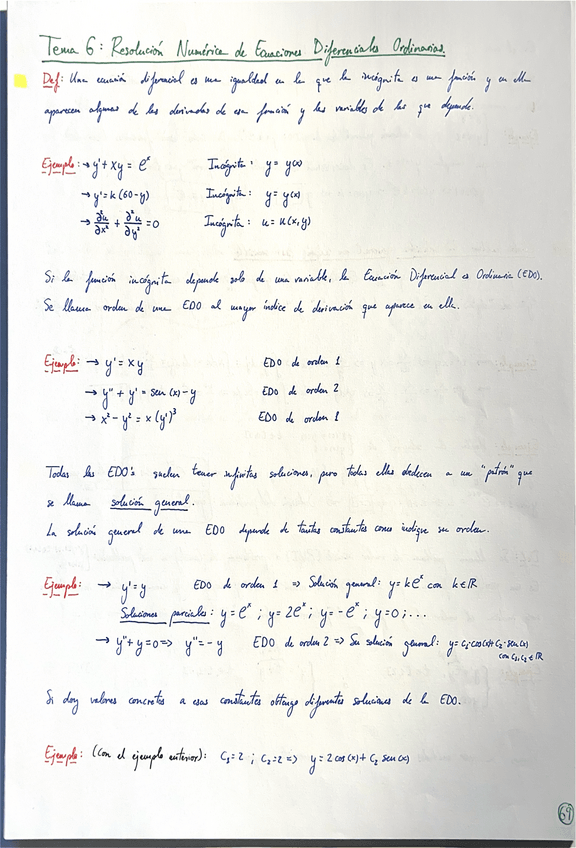 Tema 6: Resolución Numérica de Ecuaciones Diferenciales Ordinarias.
Def: Una ecuación diferencial es una igualdad en la que la incógnita es una función y en ella
aparecen algunas de las derivadas de esa función y las variables de las que depende.
Ejemplo: → y' + xy = e^x Incógnita: y = y(x)
→ y' = k(60-y) Incógnita: y = y(x)
→ ∂²u/∂x² + ∂²u/∂y² = 0 Incógnita: u = u(x,y)
Si la función incógnita depende solo de una variable, la Ecuación Diferencial es Ordinaria (EDO).
Se llama orden de una EDO al mayor índice de derivación que aparece en ella.
Ejemplo: → y' = xy EDO de orden 1
→ y'' + y' = sen(x) - y EDO de orden 2
→ x² - y² = x(y')³ EDO de orden 1
Todas las EDO's suelen tener infinitas soluciones, pero todas ellas obedecen a un "patrón" que
se llama solución general.
La solución general de una EDO depende de tantas constantes como indique su orden.
Ejemplo: → y' = y EDO de orden 1 => Solución general: y = ke^x con k∈ℝ
Soluciones parciales: y = e^x ; y = 2e^x ; y = -e^x ; y = 0 ; ...
→ y'' + y = 0 => y'' = -y EDO de orden 2 => Su solución general: y = C₁·cos(x) + C₂·sen(x)
con C₁, C₂ ∈ ℝ
Si doy valores concretos a esas constantes obtengo diferentes soluciones de la EDO.
Ejemplo: (con el ejemplo anterior): C₁ = 2 ; C₂ = 2 => y = 2cos(x) + C₂ sen(x)
69